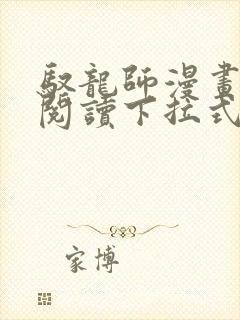 馭龍師漫畫
閱讀下拉式
家博